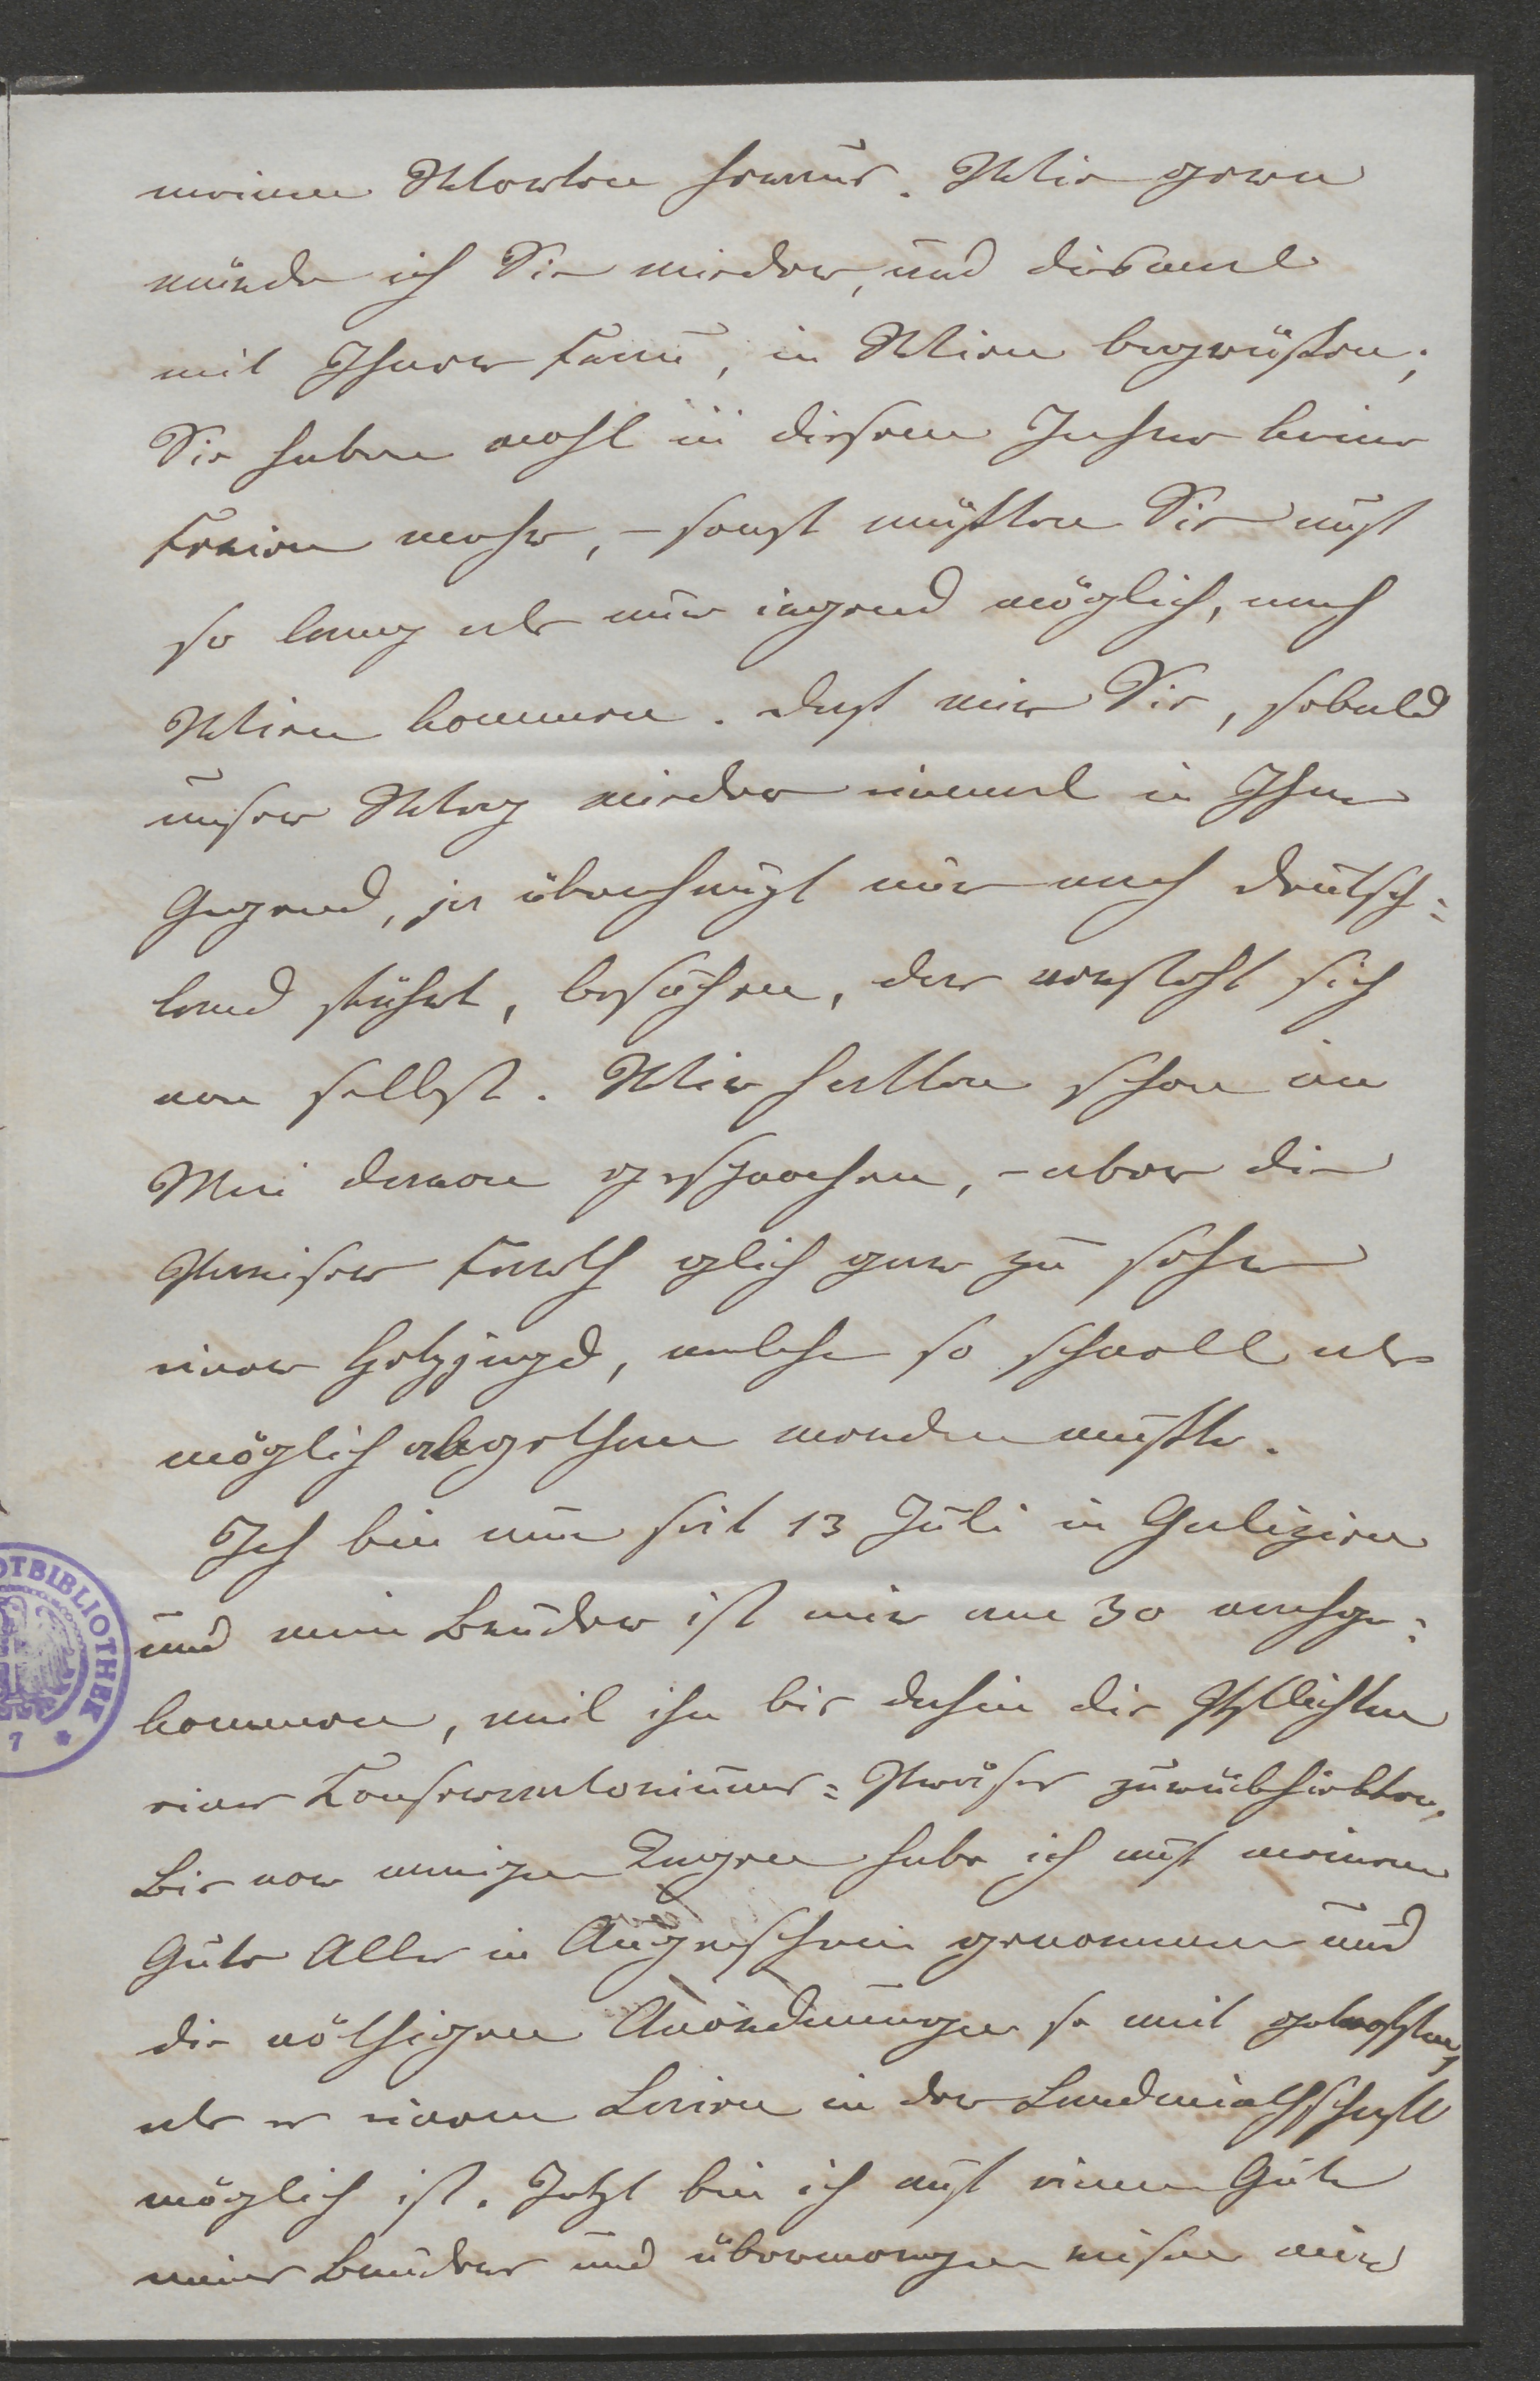 meinen Worten heraus. Wie gern
würde ich Sie wieder, und diesmal
mit Ihrer Frau, in Wien begrüßen;
Sie haben wohl in diesem Jahre keine
Ferien mehr, – sonst müßten Sie auf
so lang als nur irgend möglich, nach
Wien kommen. Daß wir Sie, sobald
unser Weg wieder einmal in Ihre
Gegend, ja überhaupt nur nach Deutsch=
land führt, besuchen, das versteht sich
von selbst. Wir hatten schon im
Mai davon gesprochen, – aber die
Pariser Fahrt glich gar zu sehr
einer Hetzjagd, welche so schnell als
möglich abgethan werden mußte.
Ich bin nun seit 13 Juli in Galizien
und mein Bruder ist mir am 30 nachge=
kommen, weil ihn bis dahin die Pflichten
eines Conservatoriums=Präses zurückhielten.
Bis vor wenigen Tagen habe ich auf meinem
Gute Alles in Augenschein genommen und
die nöthigen Anordnungen so weit getroffen,
als es einem Laien in der Landwirthschaft
möglich ist. Jetzt bin ich auf einem Gute
meines Bruders und übermorgen reisen wir
OTBIBLIOTHEK
7 *